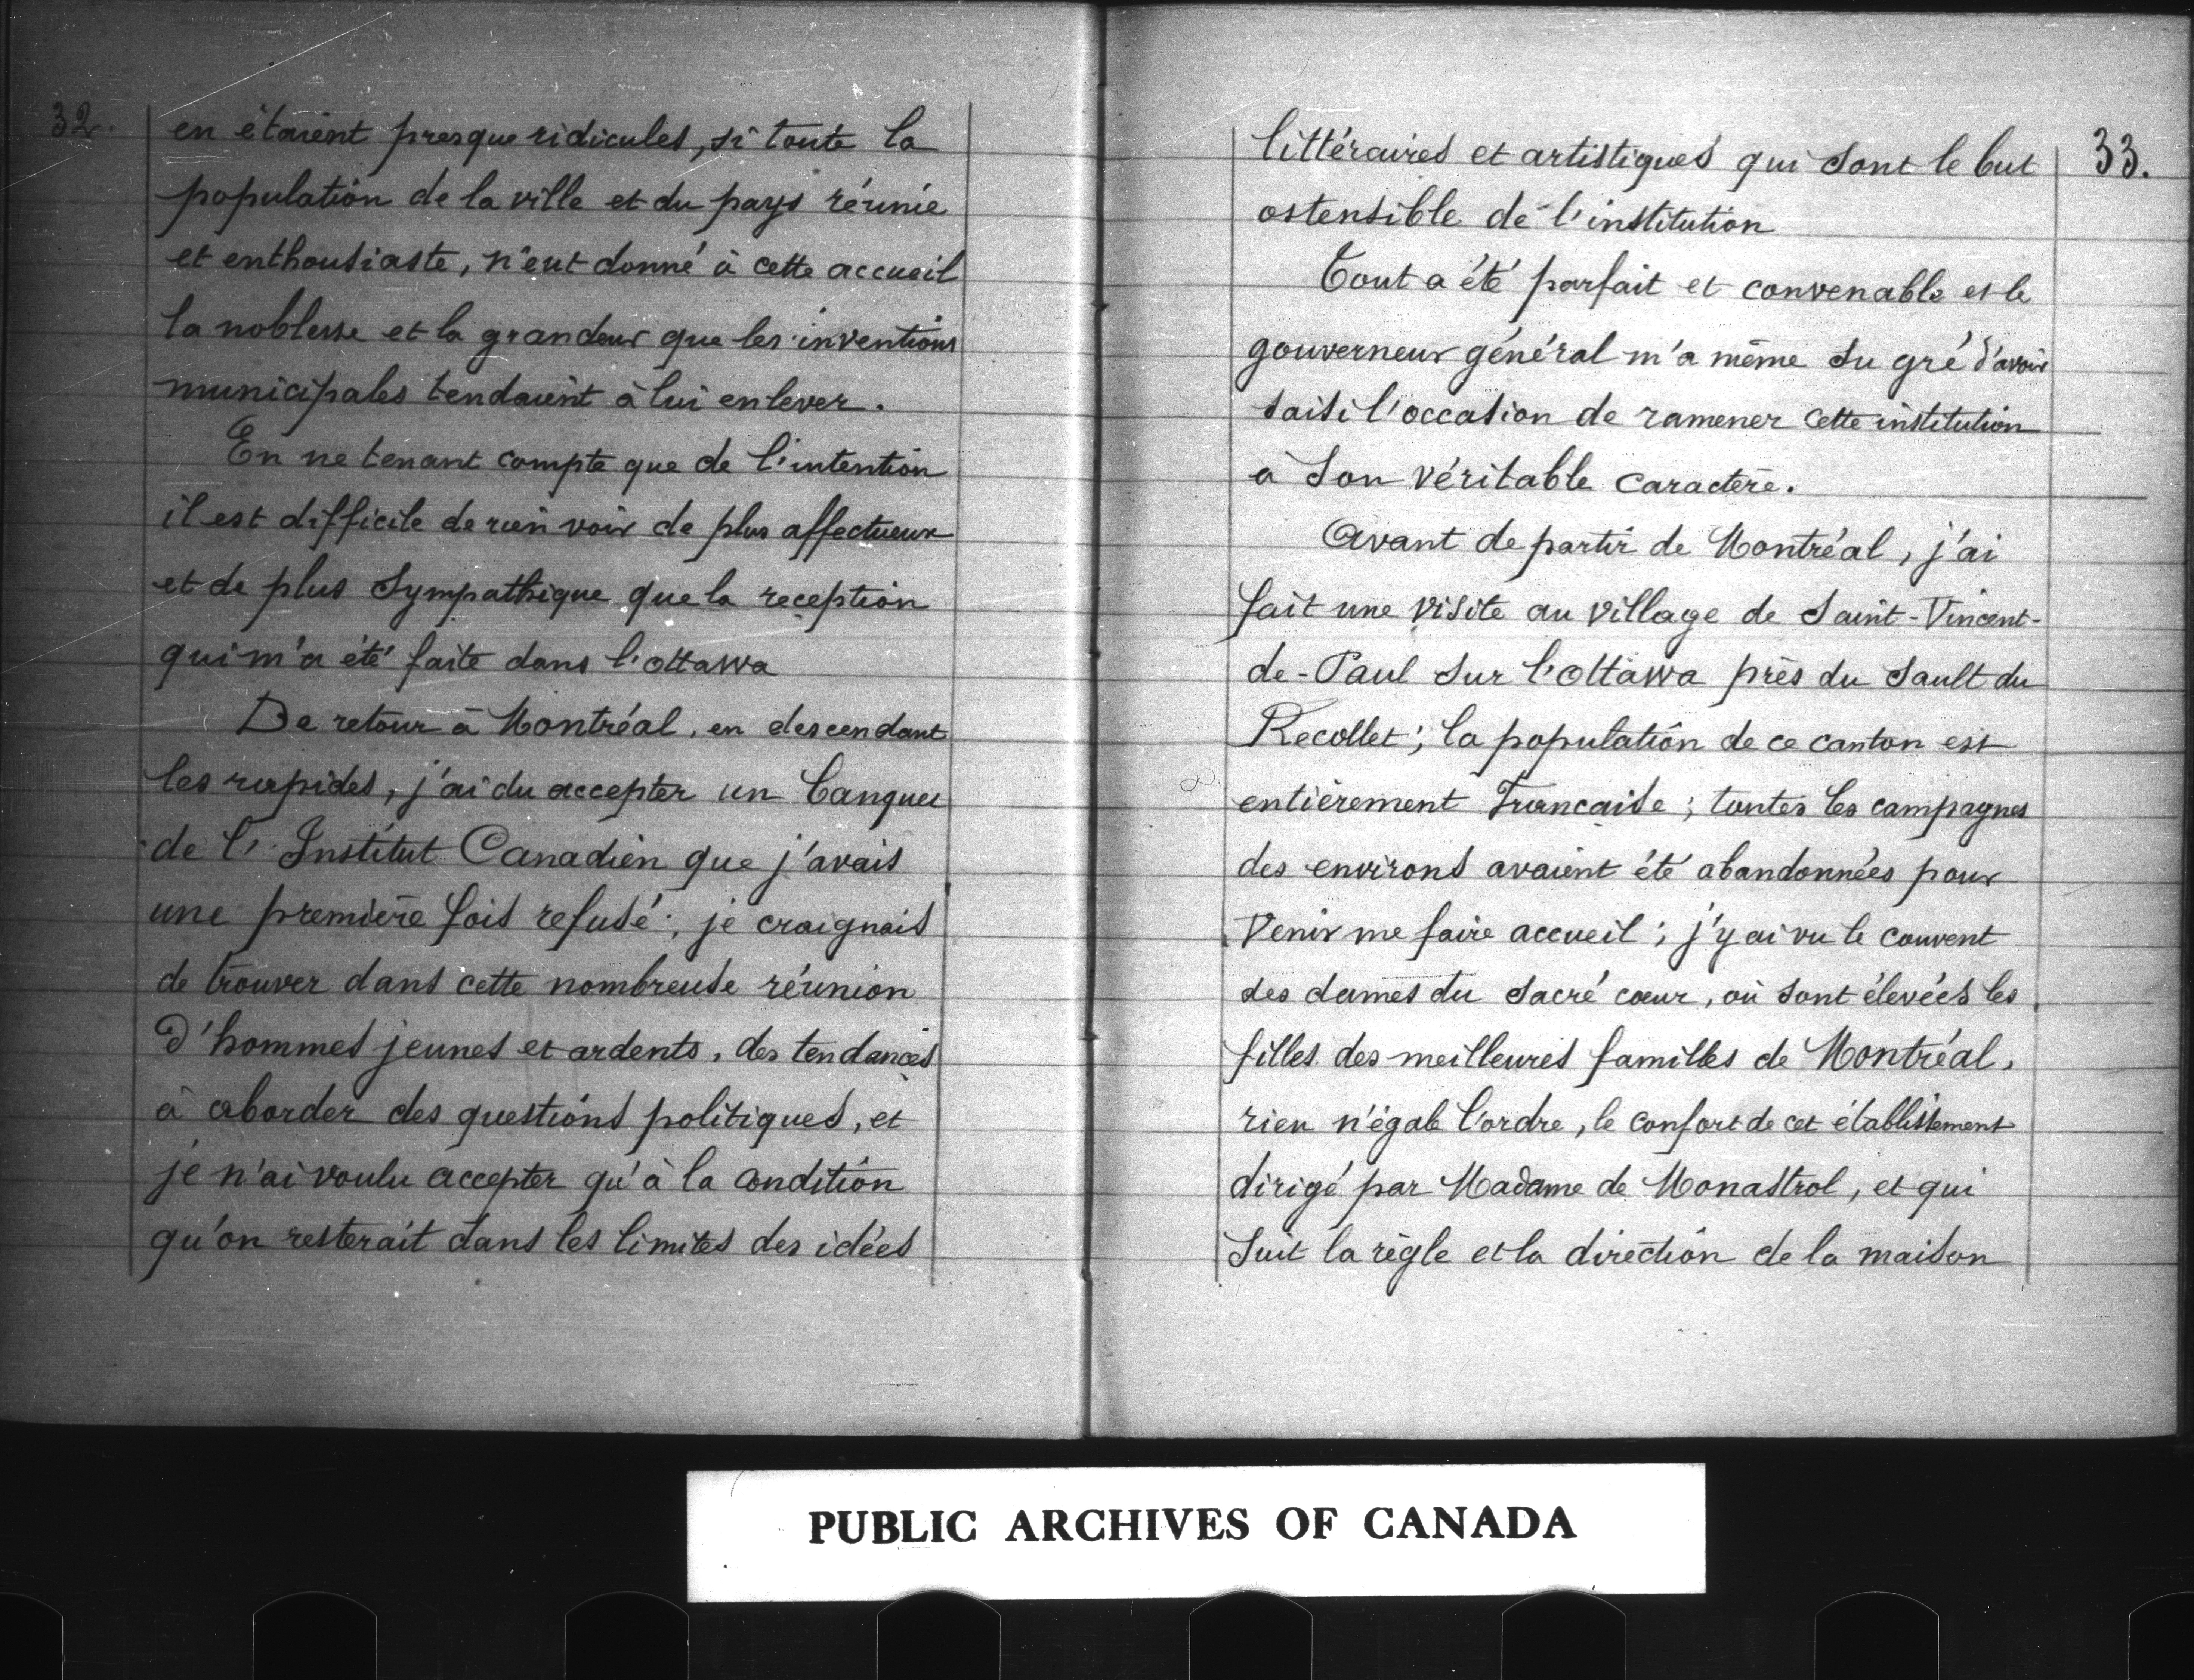 32.
en étaient presque ridicules, si toute la
population de la ville et du pays réunie
et enthousiaste, n'eut donné à cette accueil
la noblesse et la grandeur que les inventions
municipales tendaient à lui enlever.
En ne tenant compte que de l'intention
il est difficile de rien voir de plus affectueux
et de plus sympathique que la reception
qui m'a été faite dans l'ottawa
De retour à Montréal, en descendant
les rapides, j'ai du accepter un banquet
de l'Institut Canadien que j'avais
une première fois refusé; je craignais
de trouver dans cette nombreuse réunion
d'hommes jeunes et ardents, des tendances
à aborder des questions politiques, et
je n'ai voulu accepter qu'à la condition
qu'on resterait dans les limites des idées
33.
littéraires et artistiques qui sont le but
ostensible de l'institution
Tout a été parfait et convenable et le
gouverneur général m'a même su gré d'avoir
saisi l'occasion de ramener cette institution
à son véritable caractère.
Avant de partir de Montréal, j'ai
fait une visite au village de Saint-Vincent-
de-Paul sur l'Ottawa près du Sault du
Recollet; la population de ce canton est
entièrement Francaise; toutes les campagnes
des environs avaient été abandonnées pour
venir me faire accueil; j'y ai vu le couvent
des dames du sacré cœur, où sont élevées les
filles des meilleures familles de Montréal,
rien n'égale l'ordre, le confort de cet établissement
dirigé par Madame de Monastrol, et qui
suit la règle et la direction de la maison
PUBLIC ARCHIVES OF CANADA